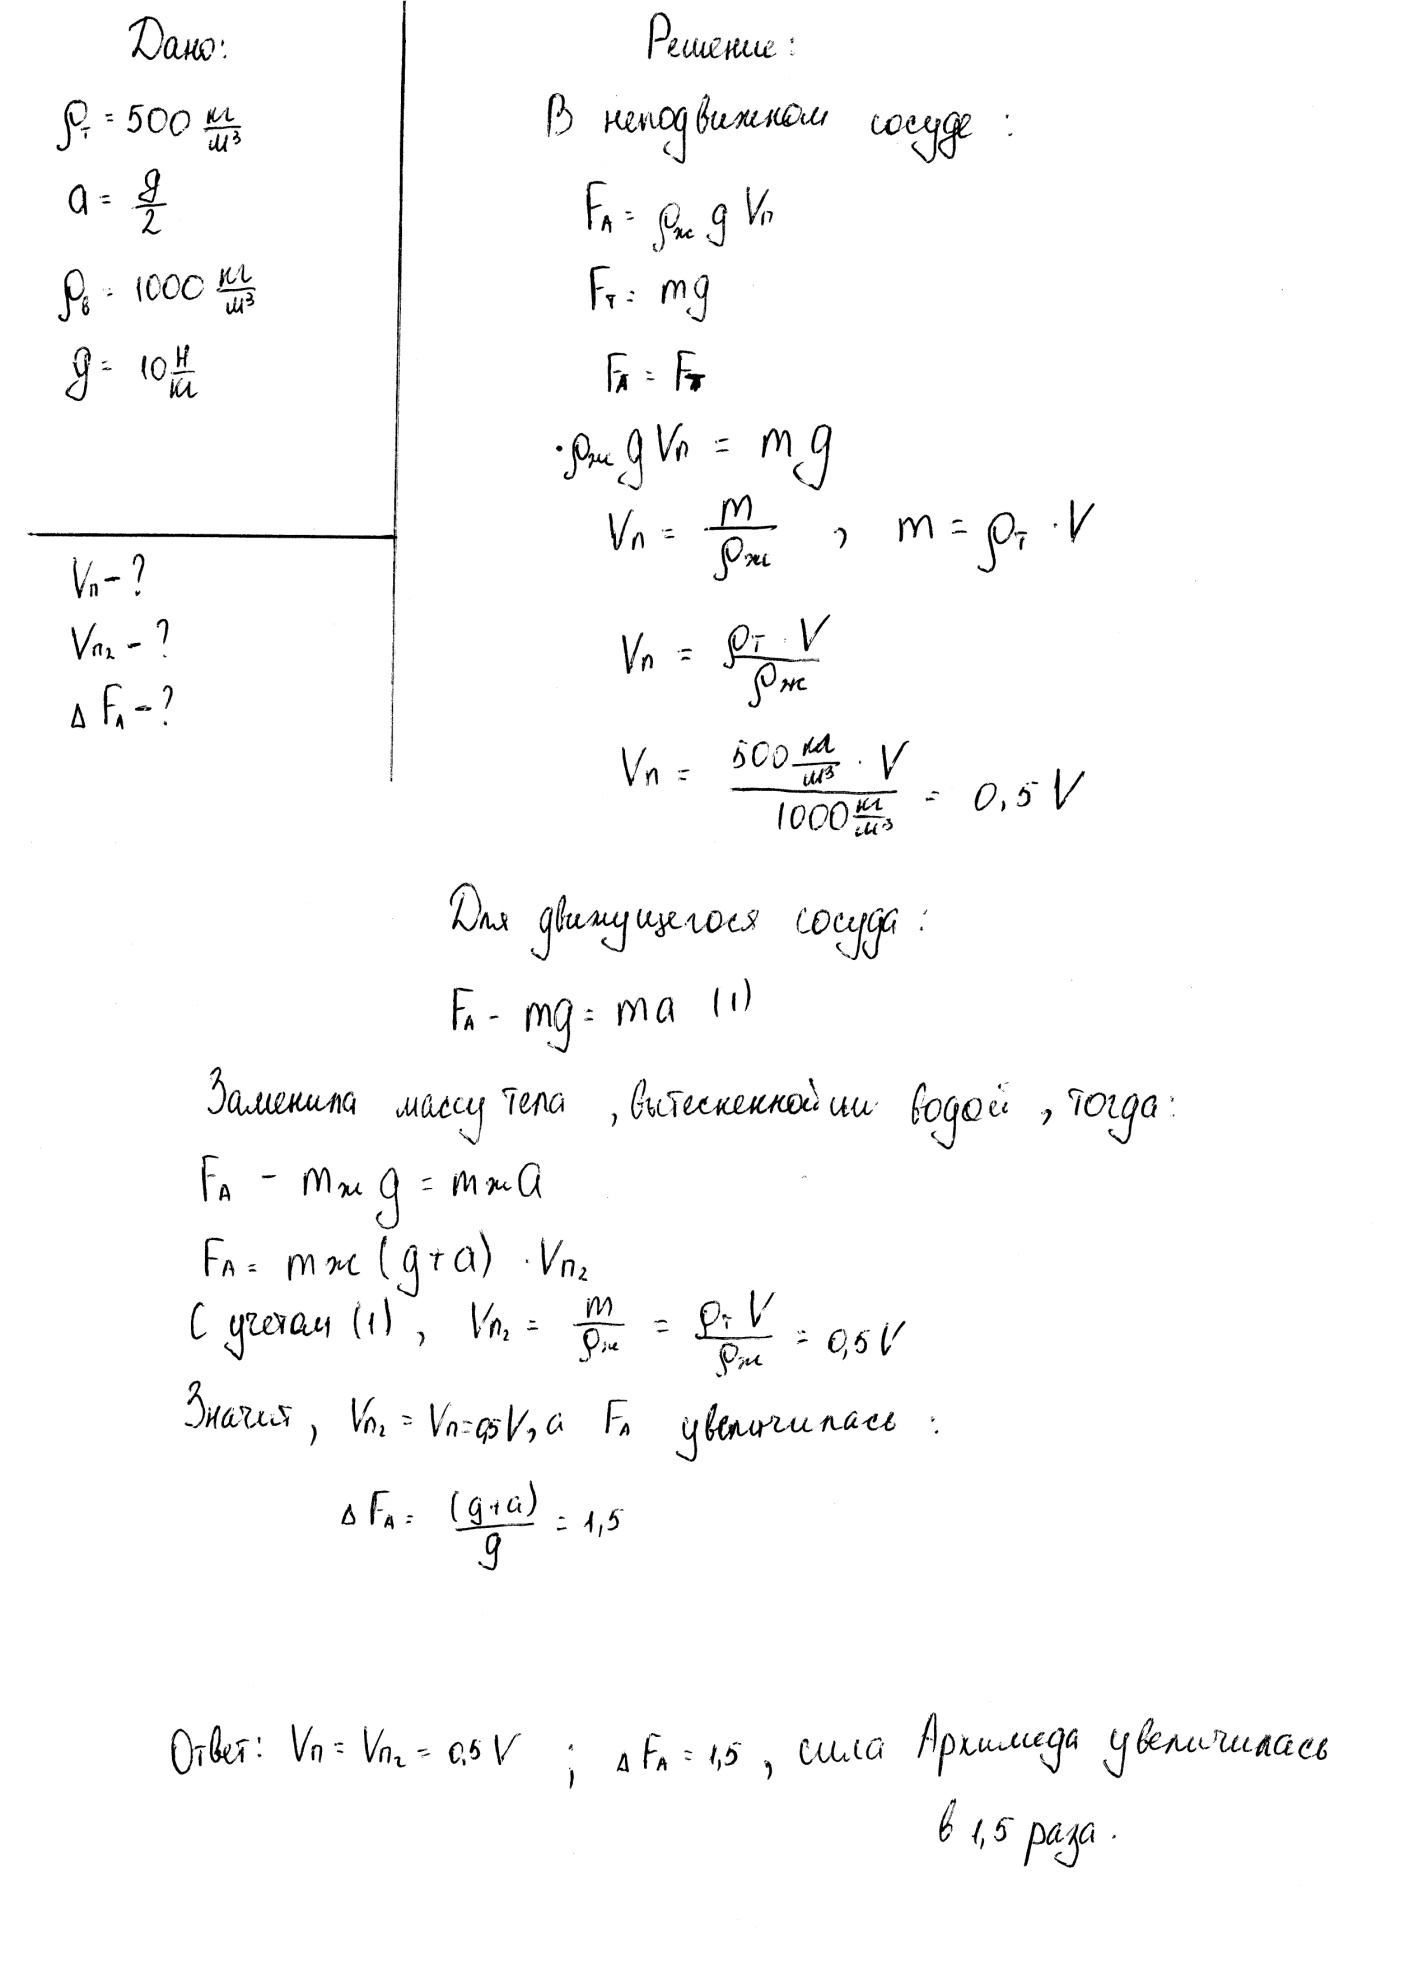 Дано:
ρт = 500 кг/м³
a = g/2
ρв = 1000 кг/м³
g = 10 Н/кг
Vп - ?
Vп₂ - ?
Δ FА - ?
Решение:
В неподвижном сосуде :
FА = ρж g Vп
Fт = mg
FА = Fт
ρж g Vп = mg
Vп = m/ρж , m = ρт · V
Vп = ρт · V/ρж
Vп = 500 кг/м³ · V / 1000 кг/м³ = 0,5 V
Для движущегося сосуда :
FА - mg = ma (1)
Заменила массу тела , вытесненной им водой , тогда :
FА - mж g = mж a
FА = mж (g+a) · Vп₂
С учетом (1) , Vп₂ = m/ρж = ρт V/ρж = 0,5 V
Значит , Vп₂ = Vп = 0,5 V, а FА увеличилась :
Δ FА = (g+a)/g = 1,5
Ответ: Vп = Vп₂ = 0,5 V ; Δ FА = 1,5 , сила Архимеда увеличилась
в 1,5 раза.